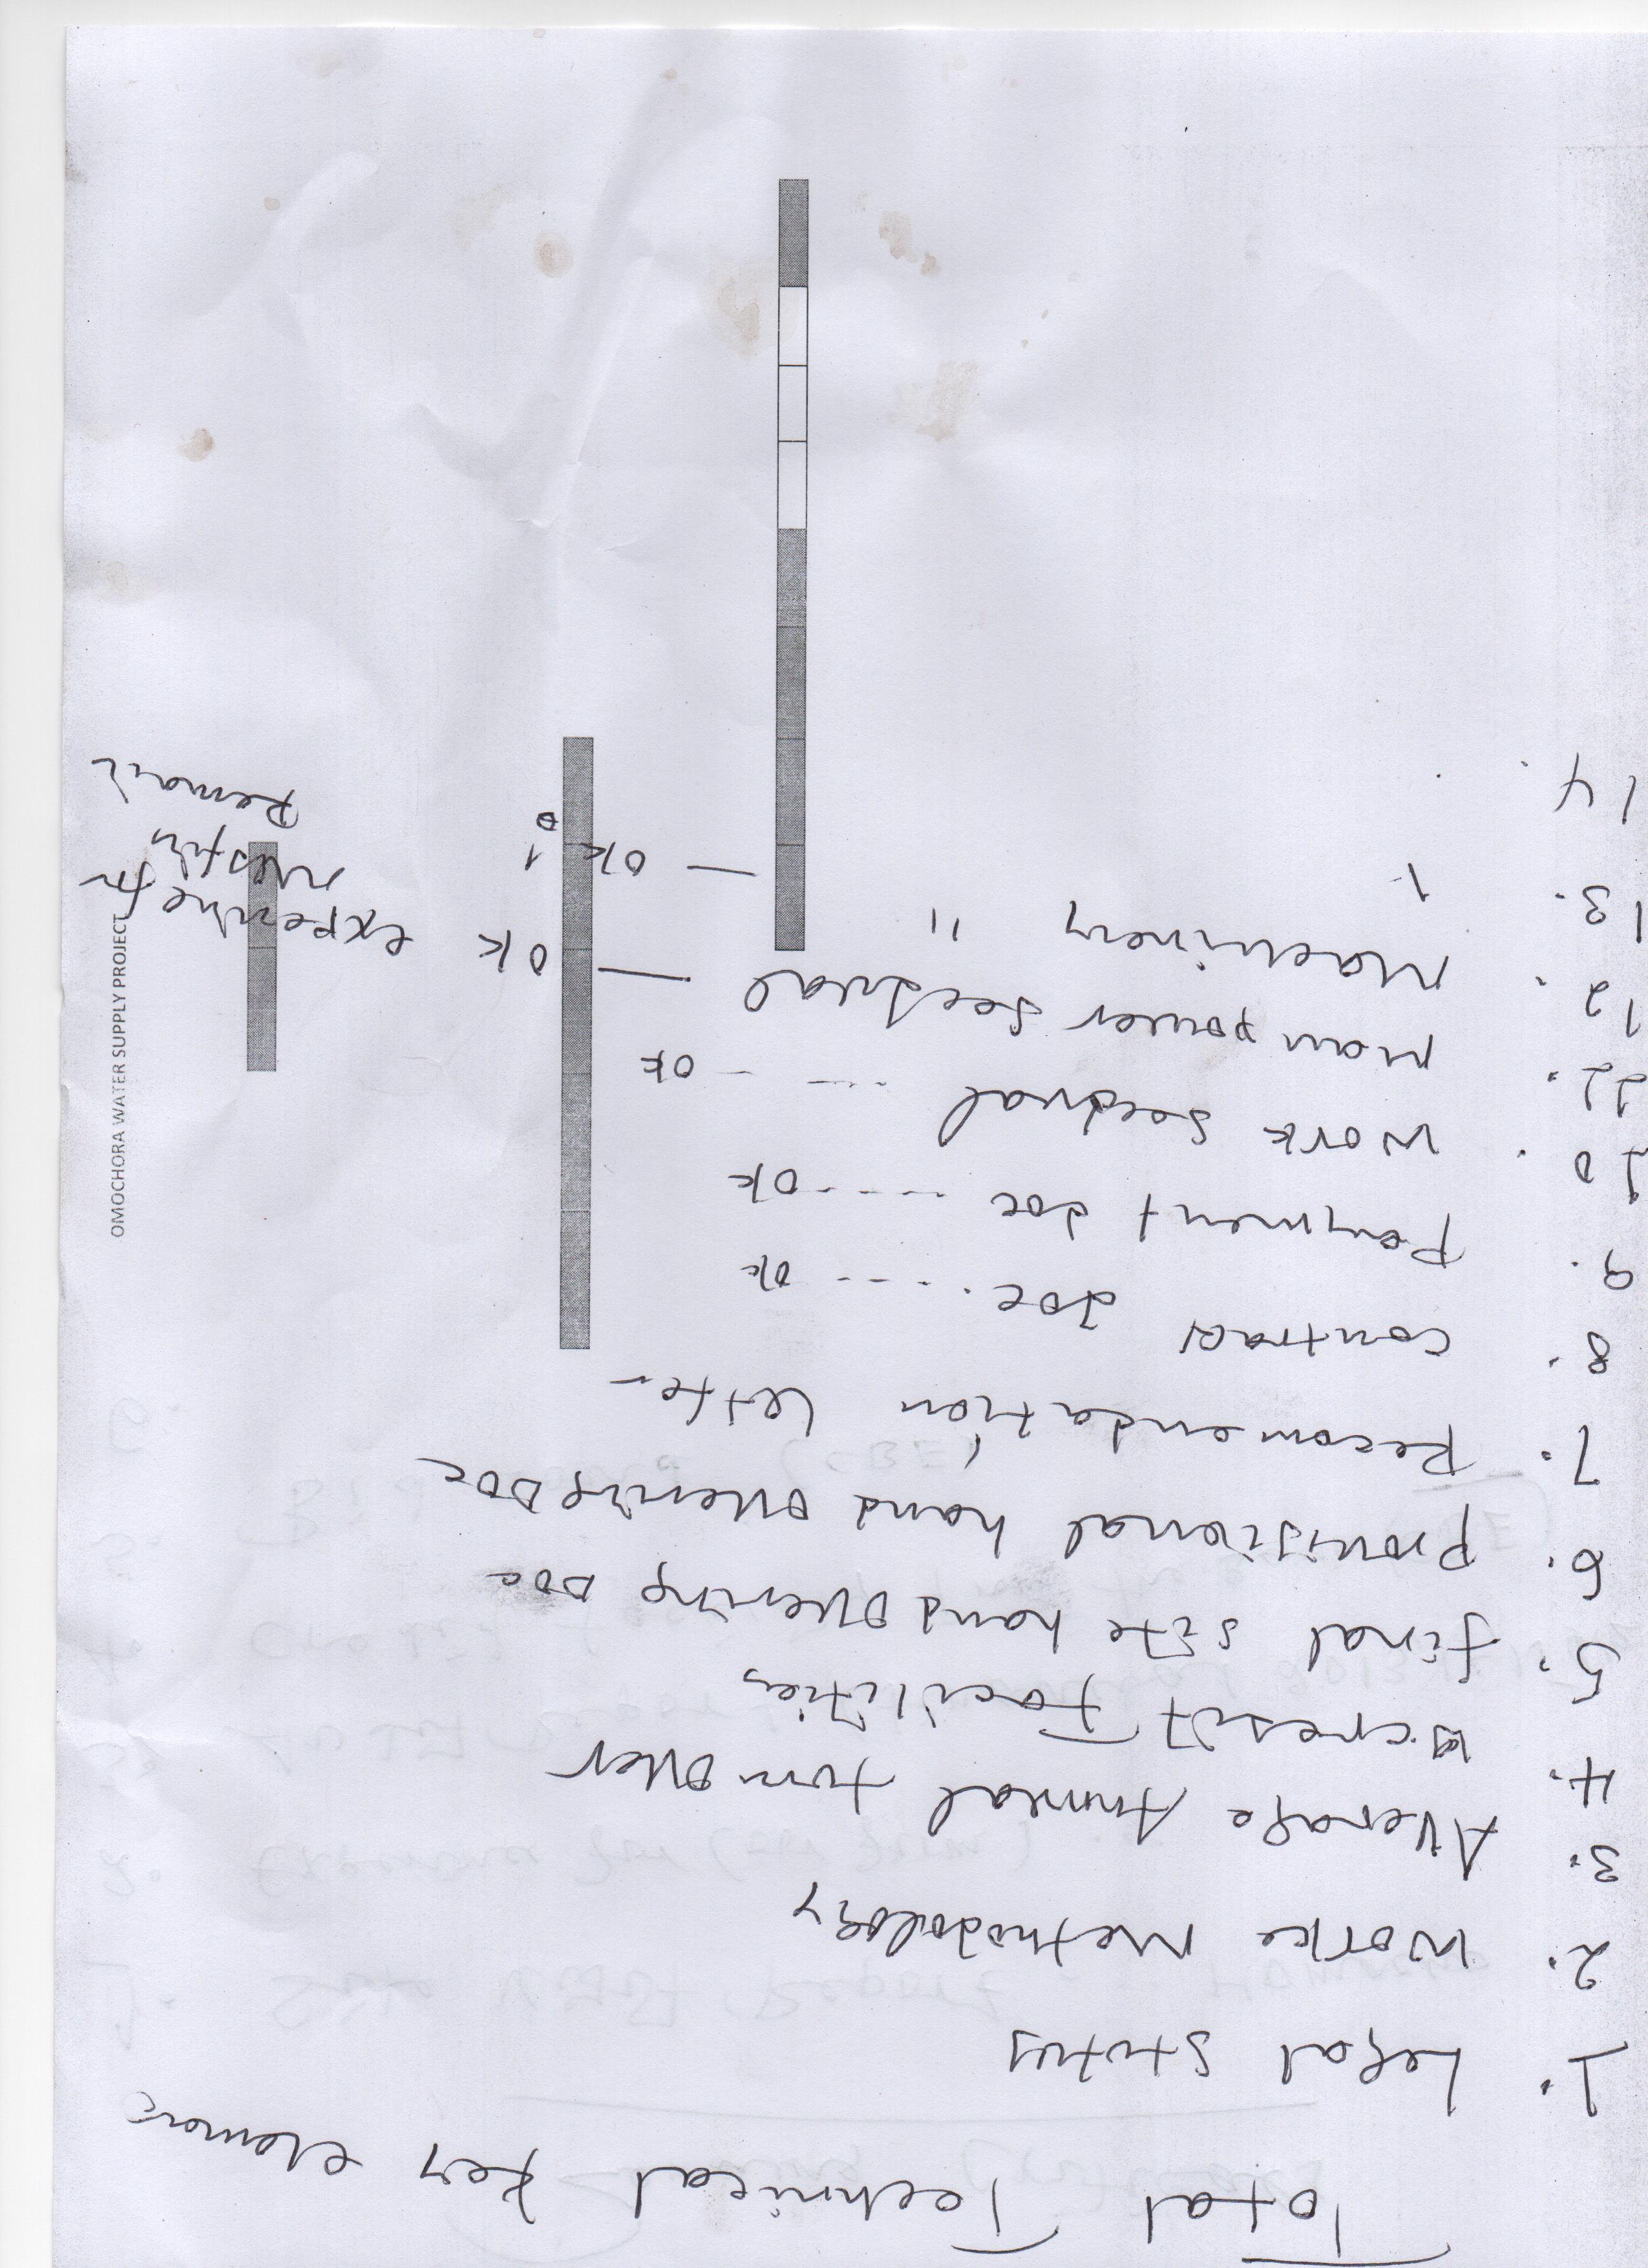 Total Technical key elemons
1. Legal Status
2. Worke Methodology
3. Average Annual turn over
4. Acresit Facilities
5. final site hand overing Doc
6. Provisional hand overing Doc
7. Recomendation letter
8. contract doc. ... ok
9. Payment doc .... ok
10. Work seedual ... - ok
11. man power seedual — ok
12. Machinery " — ok
13.
14.
experine for
Remain
OMOCHORA WATER SUPPLY PROJECT